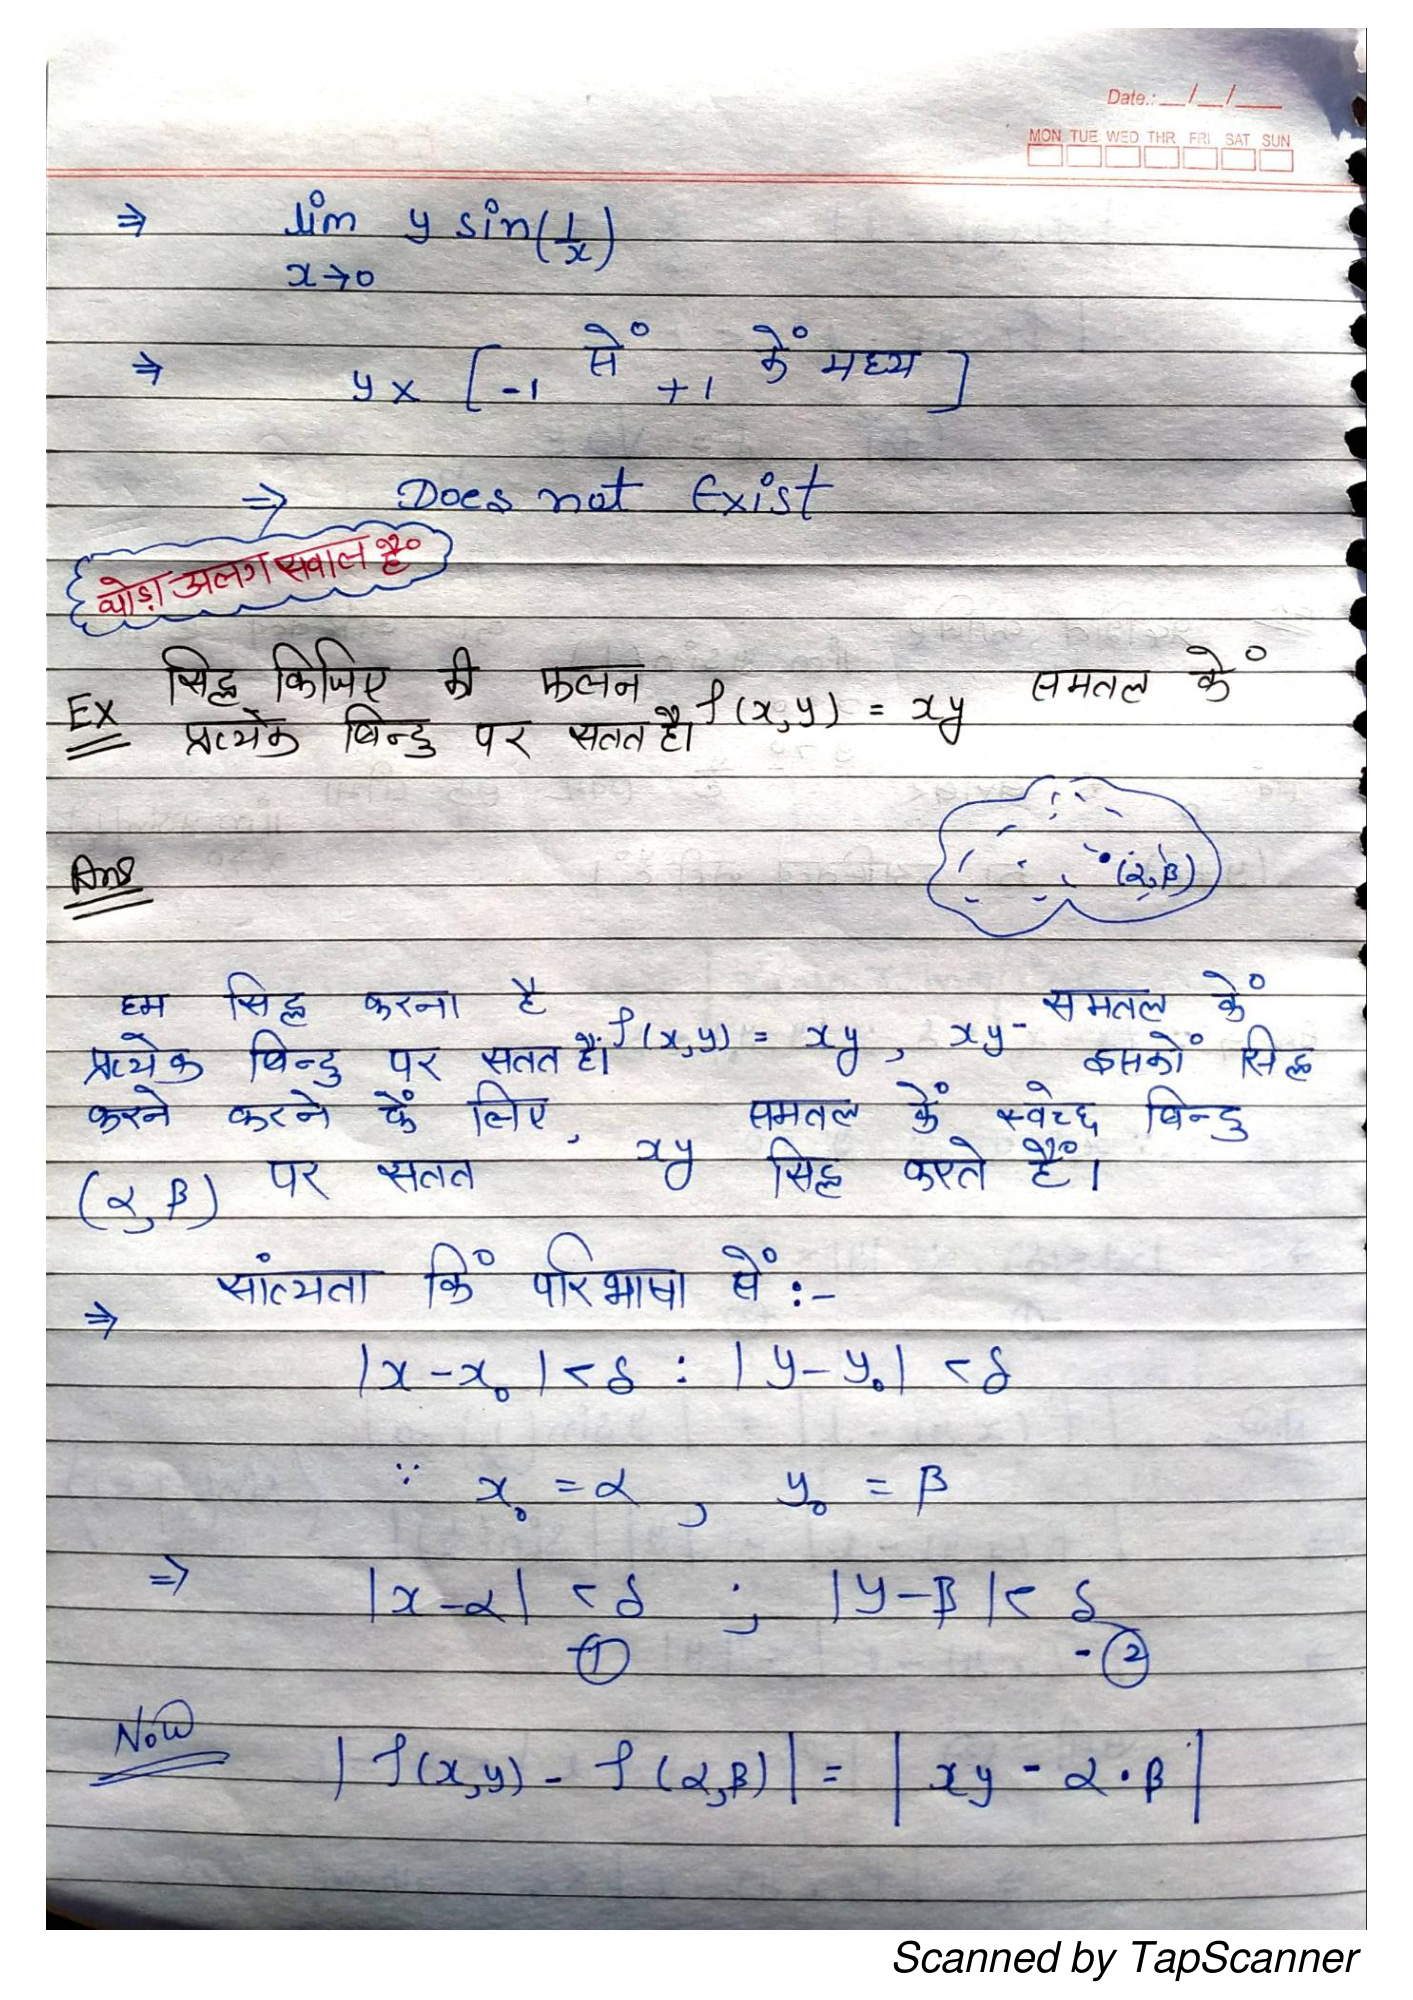 Date.: __/__/___
MON TUE WED THR FRI SAT SUN
⇒ lim y sin(1/x)
x→0
⇒ y × [-1 सें +1 कें मध्य]
⇒ Does not Exist
थोड़ा अलग सवाल हैं
Ex सिद्ध किजिए की फलन f(x,y) = xy समतल कें
प्रत्येक बिन्दु पर सतत है।
Ans
(α,β)
हम सिद्ध करना है f(x,y) = xy, xy- समतल कें
प्रत्येक बिन्दु पर सतत हैं। इसकों सिद्ध
करने करने कें लिए, xy समतल कें स्वेच्छ बिन्दु
(α,β) पर सतत सिद्ध करते हैं।
⇒ सांत्यता किं परिभाषा सें :-
|x-x₀|<δ : |y-y₀| <δ
∵ x₀ = α , y₀ = β
⇒ |x-α| <δ ; |y-β|< δ
① -②
Now |f(x,y) - f(α,β)| = |xy - α·β|
Scanned by TapScanner